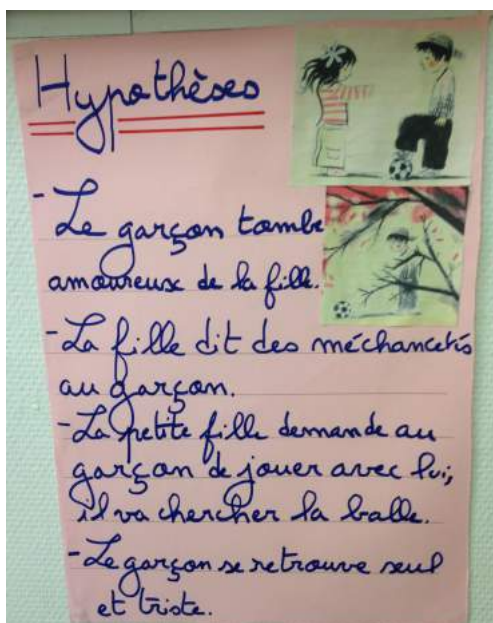 Hypothèses
- Le garçon tombe
amoureux de la fille.
- La fille dit des méchancetés
au garçon.
- La petite fille demande au
garçon de jouer avec lui,
il va chercher la balle.
- Le garçon se retrouve seul
et triste.